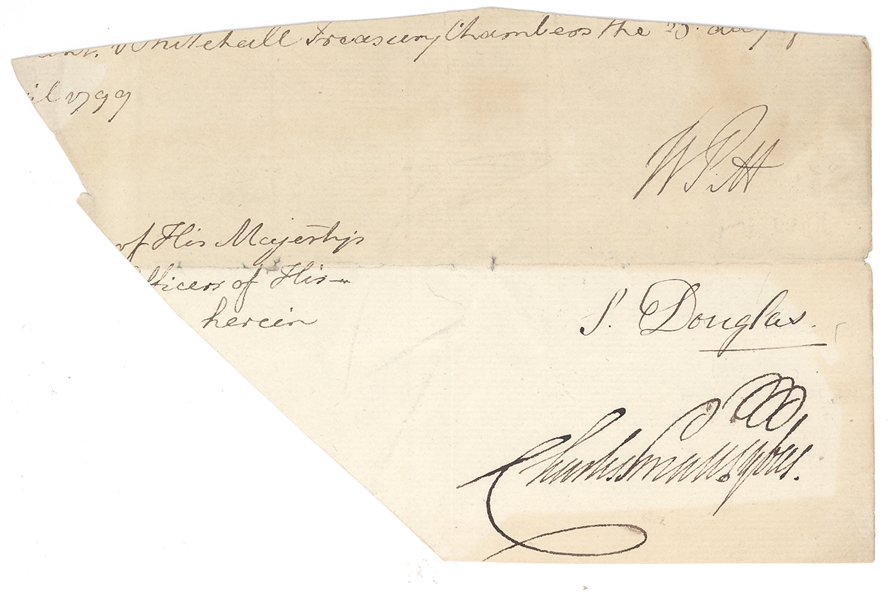 Whitehall Treasury Chambers the day of
il 1799
W Pitt
of His Majestys
fficers of His
herein
S. Douglas.
Charles Small Pybus.